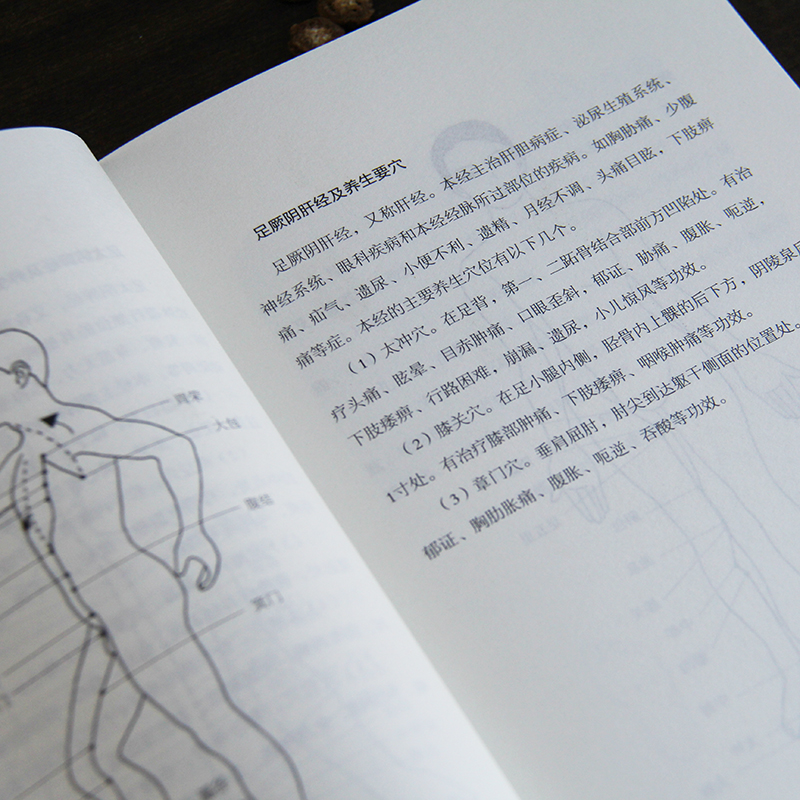 周荣
大包
腹结
冲门
足厥阴肝经及养生要穴
足厥阴肝经，又称肝经。本经主治肝胆病症、泌尿生殖系统、
神经系统、眼科疾病和本经经脉所过部位的疾病。如胸胁痛、少腹
痛、疝气、遗尿、小便不利、遗精、月经不调、头痛目眩，下肢痹
痛等症。本经的主要养生穴位有以下几个。
（1）太冲穴。在足背，第一、二跖骨结合部前方凹陷处。有治
疗头痛、眩晕、目赤肿痛、口眼歪斜，郁证、胁痛、腹胀、呃逆，
下肢痿痹、行路困难，崩漏、遗尿，小儿惊风等功效。
（2）膝关穴。在足小腿内侧，胫骨内上髁的后下方，阴陵泉后
1寸处。有治疗膝部肿痛、下肢痿痹、咽喉肿痛等功效。
（3）章门穴。垂肩屈肘，肘尖到达躯干侧面的位置处。
郁证、胸肋胀痛、腹胀、呃逆、吞酸等功效。